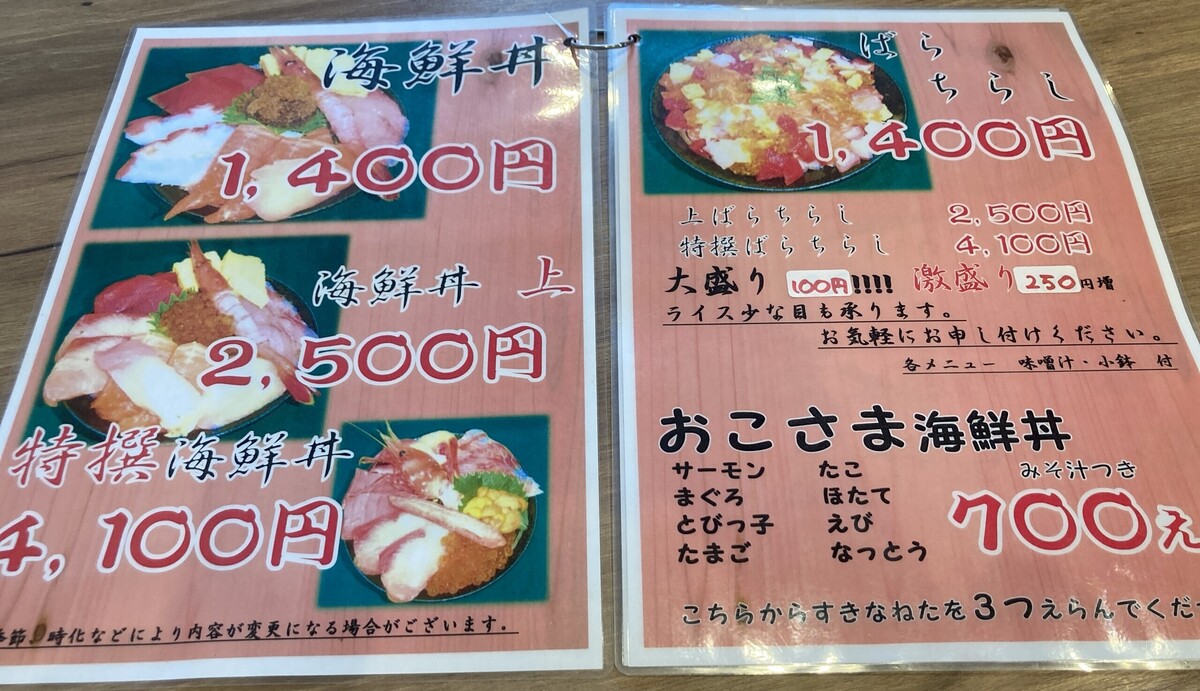 海鮮丼
1,400円
海鮮丼 上
2,500円
特撰海鮮丼
4,100円
季節、時化などにより内容が変更になる場合がございます。
ばら
ちらし
1,400円
上ばらちらし 2,500円
特撰ばらちらし 4,100円
大盛り 100円!!!! 激盛り 250円増
ライス少な目も承ります。
お気軽にお申し付けください。
各メニュー 味噌汁・小鉢 付
おこさま海鮮丼
みそ汁つき
サーモン たこ
まぐろ ほたて
とびっ子 えび
たまご なっとう
700え
こちらからすきなねたを3つえらんでくだ